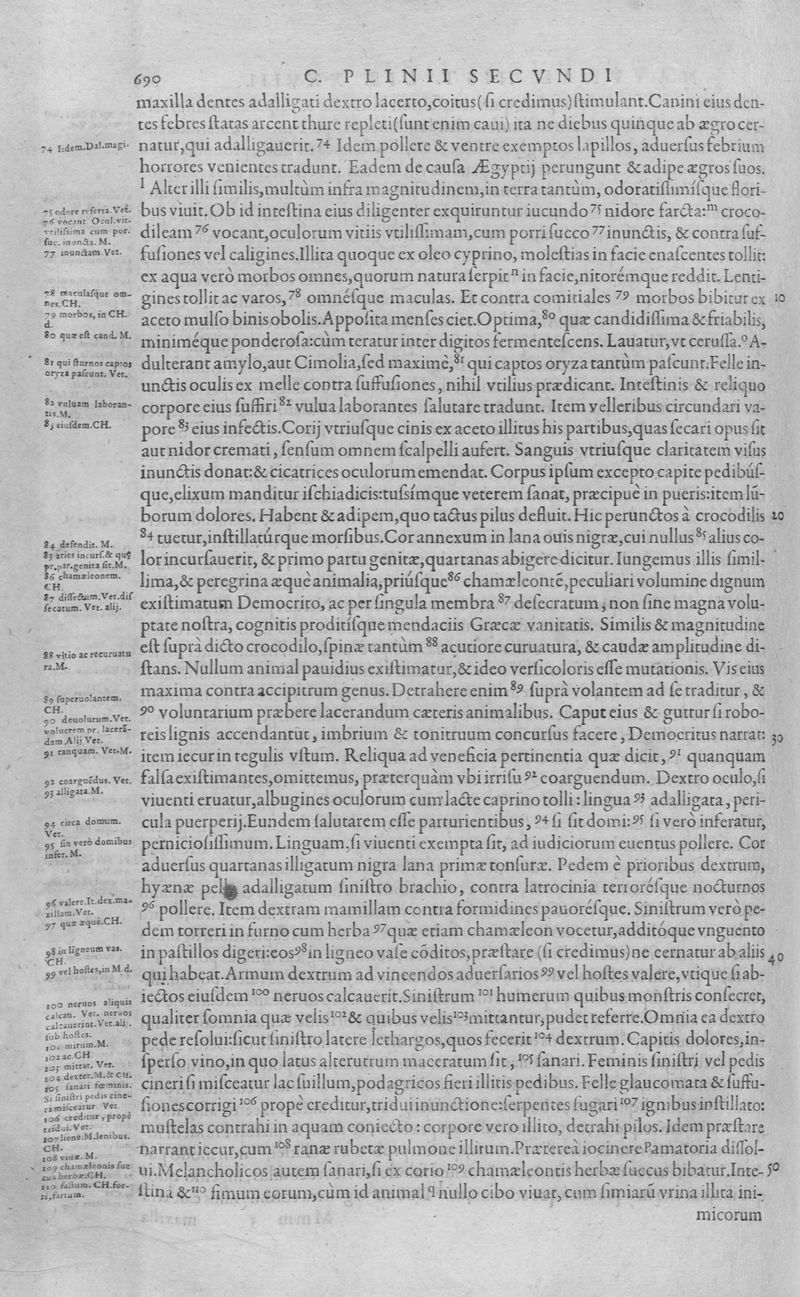 690
C. PLINII SECVNDI
maxilla dentes adalligati dextro lacerto,coitus(ſi credimus)ſtimulant.Canini eius den-
tes febres ſtatas arcent thure repleti(ſunt enim caui) ita ne diebus quinque ab ægro cer-
natur,qui adalligauerit.74 Idem pollere & ventre exemptos lapillos, aduerſus febrium
horrores venientes tradunt. Eadem de cauſa Ægyptij perungunt & adipe ægros ſuos.
l Alter illi ſimilis,multùm infra magnitudinem,in terra tantùm, odoratiſſimiſque flori-
bus viuit.Ob id inteſtina eius diligenter exquiruntur iucundo 75 nidore farcta:m croco-
dileam 76 vocant,oculorum vitiis vtiliſſimam,cum porri ſucco 77 inunctis, & contra ſuf-
fuſiones vel caligines.Illita quoque ex oleo cyprino, moleſtias in facie enaſcentes tollit:
ex aqua verò morbos omnes,quorum natura ſerpit n in facie,nitorémque reddit. Lenti-
gines tollit ac varos,78 omnéſque maculas. Et contra comitiales 79 morbos bibitur ex
aceto mulſo binis obolis.Appoſita menſes ciet.Optima,80 quæ candidiſſima & friabilis,
miniméque ponderoſa:cùm teratur inter digitos fermenteſcens. Lauatur,vt ceruſſa.o A-
dulterant amylo,aut Cimolia,ſed maximè,81 qui captos oryza tantùm paſcunt.Felle in-
unctis oculis ex melle contra ſuffuſiones, nihil vtilius prædicant. Inteſtinis & reliquo
corpore eius ſuffiri 82 vulua laborantes ſalutare tradunt. Item velleribus circundari va-
pore 83 eius infectis.Corij vtriuſque cinis ex aceto illitus his partibus,quas ſecari opus ſit
aut nidor cremati, ſenſum omnem ſcalpelli aufert. Sanguis vtriuſque claritatem viſus
inunctis donat:& cicatrices oculorum emendat. Corpus ipſum excepto capite pedibúſ-
que,elixum manditur iſchiadicis:tuſsímque veterem ſanat, præcipuè in pueris:item lū-
borum dolores. Habent & adipem,quo tactus pilus defluit. Hic perunctos à crocodilis
84 tuetur,inſtillatúrque morſibus.Cor annexum in lana ouis nigræ,cui nullus 85 alius co-
lor incurſauerit, & primo partu genitæ,quartanas abigere dicitur. Iungemus illis ſimil-
lima,& peregrina æquè animalia,priúſque 86 chamæleontē,peculiari volumine dignum
exiſtimatum Democrito, ac per ſingula membra 87 deſecratum, non ſine magna volu-
ptate noſtra, cognitis proditiſque mendaciis Græcæ vanitatis. Similis & magnitudine
eſt ſuprà dicto crocodilo,ſpinæ tantùm 88 acutiore curuatura, & caudæ amplitudine di-
ſtans. Nullum animal pauidius exiſtimatur,& ideo verſicoloris eſſe mutationis. Vis eius
maxima contra accipitrum genus. Detrahere enim 89 ſuprà volantem ad ſe traditur, &
90 voluntarium præbere lacerandum cæteris animalibus. Caput eius & guttur ſi robo-
reis lignis accendantur, imbrium & tonitruum concurſus facere, Democritus narrat:
item iecur in tegulis vſtum. Reliqua ad veneficia pertinentia quæ dicit, 91 quanquam
falſa exiſtimantes,omittemus, præterquàm vbi irriſu 92 coarguendum. Dextro oculo,ſi
viuenti eruatur,albugines oculorum cum lacte caprino tolli : lingua 93 adalligata, peri-
cula puerperij.Eundem ſalutarem eſſe parturientibus, 94 ſi ſit domi:95 ſi verò inferatur,
pernicioſiſſimum. Linguam,ſi viuenti exempta ſit, ad iudiciorum euentus pollere. Cor
aduerſus quartanas illigatum nigra lana primæ tonſuræ. Pedem è prioribus dextrum,
hyænæ adalligatum ſiniſtro brachio, contra latrocinia terroréſque nocturnos
96 pollere. Item dextram mamillam contra formidines pauoréſque. Siniſtrum verò pe-
dem torreri in furno cum herba 97 quæ etiam chamæleon vocetur,additóque vnguento
in paſtillos digeri:eos 98 in ligneo vaſe cōditos,præſtare (ſi credimus)ne cernatur ab aliis
qui habeat.Armum dextrum ad vincendos aduerſarios 99 vel hoſtes valere,vtique ſi ab-
iectos eiuſdem 100 neruos calcauerit.Siniſtrum 101 humerum quibus monſtris conſecret,
qualiter ſomnia quæ velis 102 & quibus velis 103 mittantur,pudet referre.Omnia ea dextro
pede reſolui:ſicut ſiniſtro latere lethargos,quos fecerit 104 dextrum. Capitis dolores,in-
ſperſo vino,in quo latus alterutrum maceratum ſit, 105 ſanari. Feminis ſiniſtri vel pedis
cineri ſi miſceatur lac ſuillum,podagricos fieri illitis pedibus. Felle glaucomata & ſuffu-
ſiones corrigi 106 propè creditur,tridui inunctione:ſerpentes fugari 107 ignibus inſtillato:
muſtelas contrahi in aquam coniecto : corpore vero illito, detrahi pilos. Idem præſtare
narrant iecur,cum 108 ranæ rubetæ pulmone illitum.Præterea iocinere Pamatoria diſſol-
ui.Melancholicos autem ſanari,ſi ex corio 109 chamæleontis herbæ ſuccus bibatur.Inte-
ſtina & 110 fimum eorum,cùm id animal q nullo cibo viuat, cum ſimiarū vrina illita ini-
micorum
10
20
30
40
50
74 Itidem.Dal.magi-
75 odore referta.Vet.
76 vocant Ocul.vit.
vtiliſsima cum por.
ſuc. inuncti. M.
77 inunctam.Vet.
78 maculaſque om-
nes.CH.
79 morbos, in CH.
d.
80 quæ eſt cand. M.
81 qui ſturnos captos
oryza paſcunt. Vet.
82 vuluam laboran-
tis.M.
83 eiuſdem.CH.
84 defendit. M.
85 aries incurſ.& quę
pr.par.genita ſit.M.
86 chamæleonem.
CH
87 diſſectum.Vet.diſ
ſecatum. Vet. alij.
88 vitio ac recuruatu
ra.M.
89 ſuperuolantem.
CH.
90 deuolutum.Vet.
volucrem pr. lacerā-
dam Alij Vet.
91 tanquam. Vet.M.
92 coarguēdus. Vet.
93 alligata.M.
94 circa domum.
Vet.
95 ſin verò domibus
infer. M.
96 valere.It.dex.ma-
xillam.Vet.
97 quæ æquè.CH.
98 in ligneum vas.
CH.
99 vel hoſtes,in M.d.
100 neruos aliquis
calcati. Vet. neruos
calcauerint.Vet.alij.
ſub hoſtes.
101 mirum.M.
102 ac CH
103 mittat. Vet.
104 dexter.M.& CH.
105 ſanari fœminis.
Si ſiniſtri pedis cine-
ri miſceatur Vet
106 creditur, propè
tridui.Vet.
107 liene.M.lenibus.
CH.
109 chamæleonis ſuc
cus herbæ.CH.
110 factum. CH.for-
te,fartum.